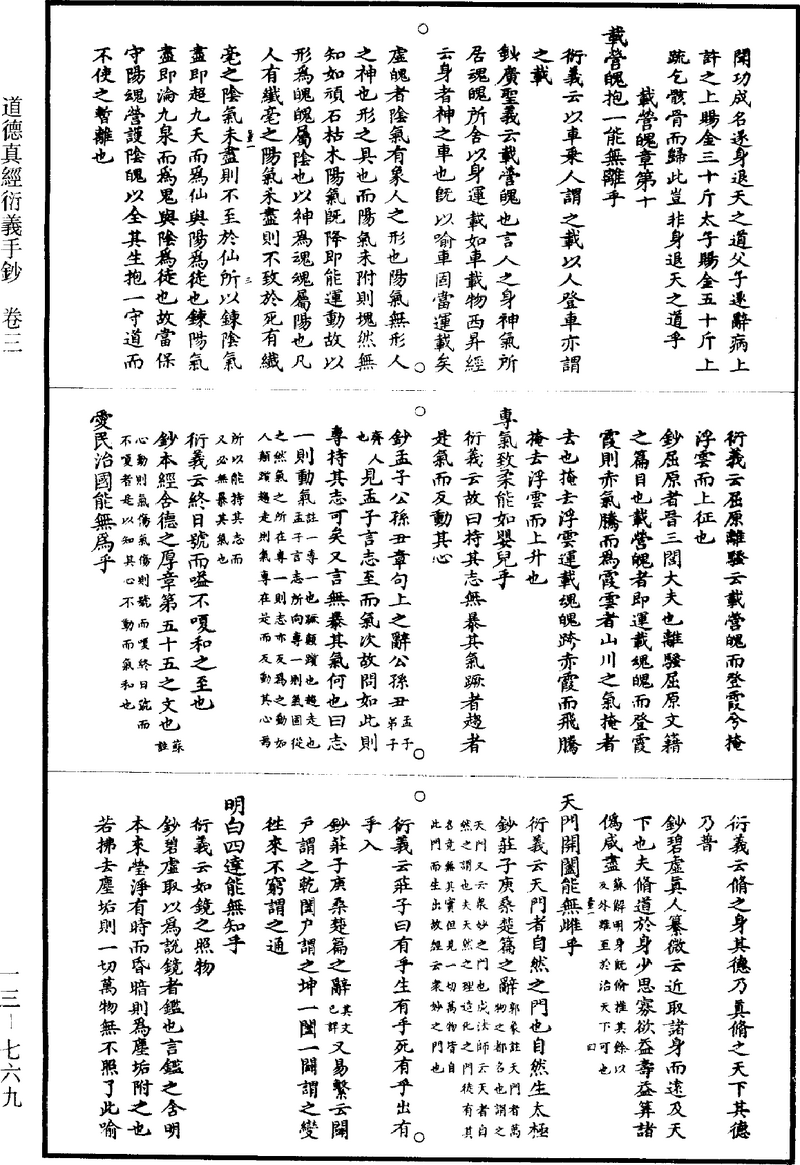 道德真經衍義手鈔　卷三
一三－七六九
聞功成名遂身退天之道父子遂辭病上
許之上賜金三十斤太子賜金五十斤上
疏乞骸骨而歸此豈非身退天之道乎
載營魄章第十
載營魄抱一能無離乎
衍義云以車乗人謂之載以人登車亦謂
之載
鈔廣聖義云載營魄也言人之身神氣所
居魂魄所舍以身運載如車載物西昇經
云身者神之車也既以喻車固當運載矣
虛魄者陰氣有象人之形也陽氣無形人
之神也形之具也而陽氣未附則塊然無
知如頑石枯木陽氣既降即能運動故以
形為魄魄屬陰也以神為魂魂屬陽也凡
人有纖毫之陽氣未盡則不致於死有纖
毫之陰氣未盡則不至於仙所以鍊陰氣
盡即超九天而為仙與陽為徒也鍊陽氣
盡即淪九泉而為鬼與陰為徒也故當保
守陽魂營護陰魄以全其生抱一守道而
不使之暫離也
衍義云屈原離騷云載營魄而登霞兮掩
浮雲而上征也
鈔屈原者晋三閭大夫也離騷屈原文籍
之篇目也載營魄者即運載魂魄而登霞
霞則赤氣騰而為霞雲者山川之氣掩者
去也掩去浮雲運載魂魄跨赤霞而飛騰
掩去浮雲而上升也
專氣致柔能如嬰兒乎
衍義云故曰持其志無暴其氣蹶者趨者
是氣而反動其心
鈔孟子公孫丑章句上之辭公孫丑孟子弟子
也齊人見孟子言志至而氣次故問如此則
專持其志可矣又言無暴其氣何也曰志
一則動氣註一專一也蹶顛躓也趨走也
孟子言志所向專一則氣固從
之然氣之所在專一則志亦反為之動如
人顛躓趨走則氣專在是而反動其心焉
所以能持其志而
又必無暴其氣也
衍義云終日號而嗌不嗄和之至也
鈔本經含德之厚章第五十五之文也蘇註
心動則氣傷氣傷則號而嗄終日號而
不嗄者是以知其心不動而氣和也
愛民治國能無為乎
衍義云脩之身其德乃真脩之天下其德
乃普
鈔碧虛真人纂微云近取諸身而遠及天
下也夫脩道於身少思寡欲益壽益筭諸
偽咸盡蘇解明身既脩推其餘以
及外雖至於治天下可也
天門開闔能無雌乎
衍義云天門者自然之門也自然生太極
鈔莊子庚桑楚篇之辭郭象註天門者萬
物之都名也謂之
天門又云衆妙之門也成法師云天者自
然之謂也夫天然之理造化之門徒有其
名竟無其實但見一切萬物皆自
此門而生出故經云衆妙之門也
衍義云莊子曰有乎生有乎死有乎出有
乎入
鈔莊子庚桑楚篇之辭其文已詳又易繫云闢
戶謂之乾闔戶謂之坤一闔一闢謂之變
徃來不窮謂之通
明白四達能無知乎
衍義云如鏡之照物
鈔碧虛取以為說鏡者鑑也言鑑之含明
本來瑩淨有時而昏暗則為塵垢附之也
若拂去塵垢則一切萬物無不照了此喻